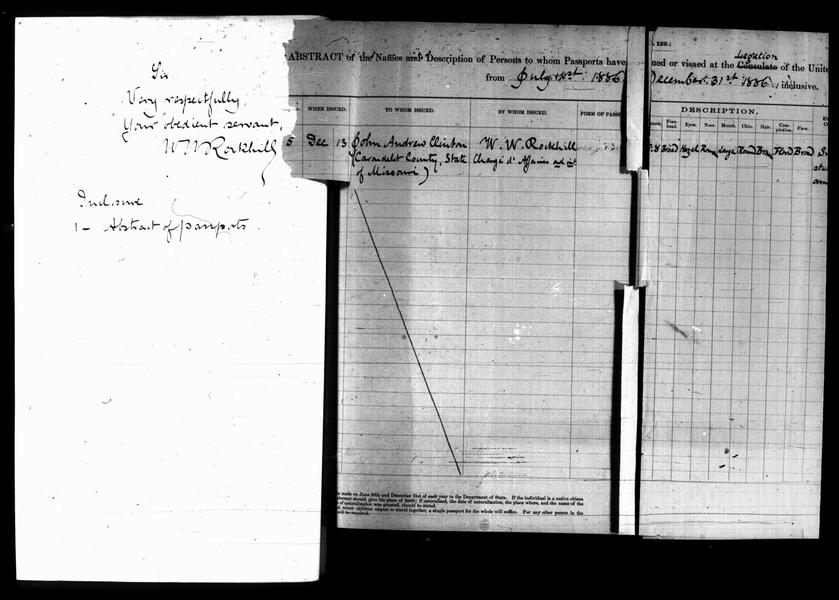 Sir
Very respectfully
Your obedient servant,
W W Rockhill
Inclosure
1 – Abstract of passports.
ABSTRACT of the Names and Description of Persons to whom Passports have
ned or visaed at the Consulate Legation of the Unite
from July 1st 1886
December 31st 1886, inclusive.
WHEN ISSUED.
TO WHOM ISSUED.
BY WHOM ISSUED.
FORM OF PASSP
DESCRIPTION.
Eyes.
Nose.
Mouth.
Chin.
Hair.
Com-
plexion.
Face.
5 Dec 13 John Andrew Clinton W. W. Rockhill
(Carondelet County, State Chargé d' Affaires ad int
of Missouri)
Broad Hazel Large Round
made on June 30th and December 31st of each year to the Department of State. If the individual is a native citizen
should give his place of birth; if naturalized, the date of naturalization, the place where, and the name of the
of naturalization was granted, should be stated.
children expect to travel together, a single passport for the whole will suffice. For any other person in the
will be required.